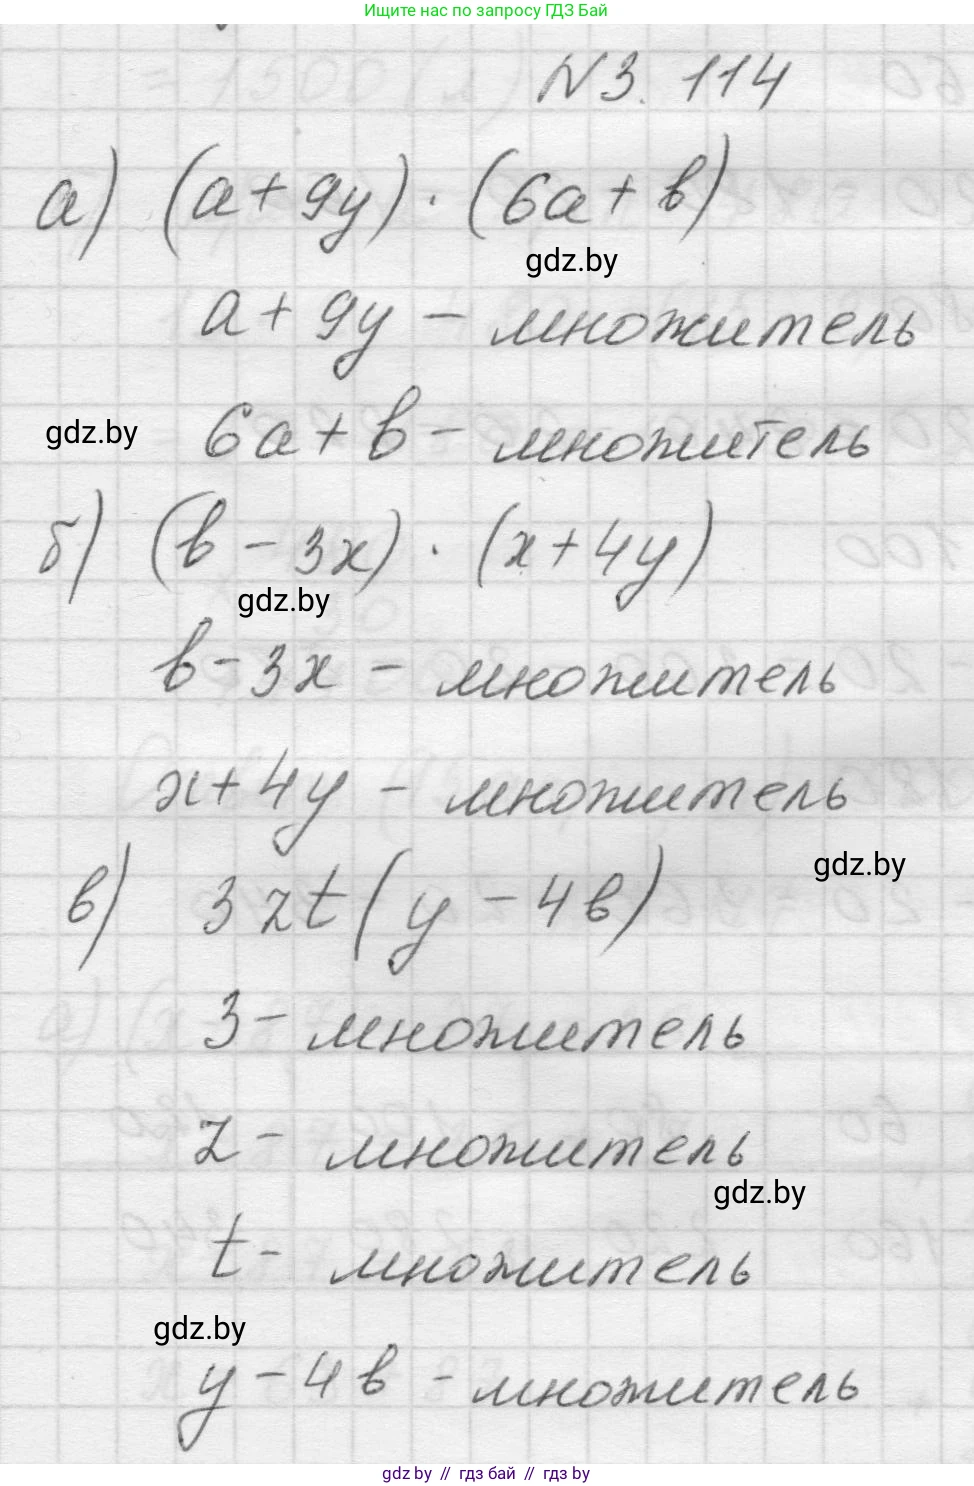 Ищите нас по запросу ГДЗ Бай
N 3. 114
а) (a + 9y) · (6a + b)
gdz.by
a + 9y – множитель
gdz.by
6a + b – множитель
б) (b – 3x) · (x + 4y)
gdz.by
b – 3x – множитель
x + 4y – множитель
gdz.by
в) 3zt(y – 4b)
3 – множитель
z – множитель
gdz.by
t – множитель
gdz.by
y – 4b – множитель
gdz by // гдз бай // гдз by